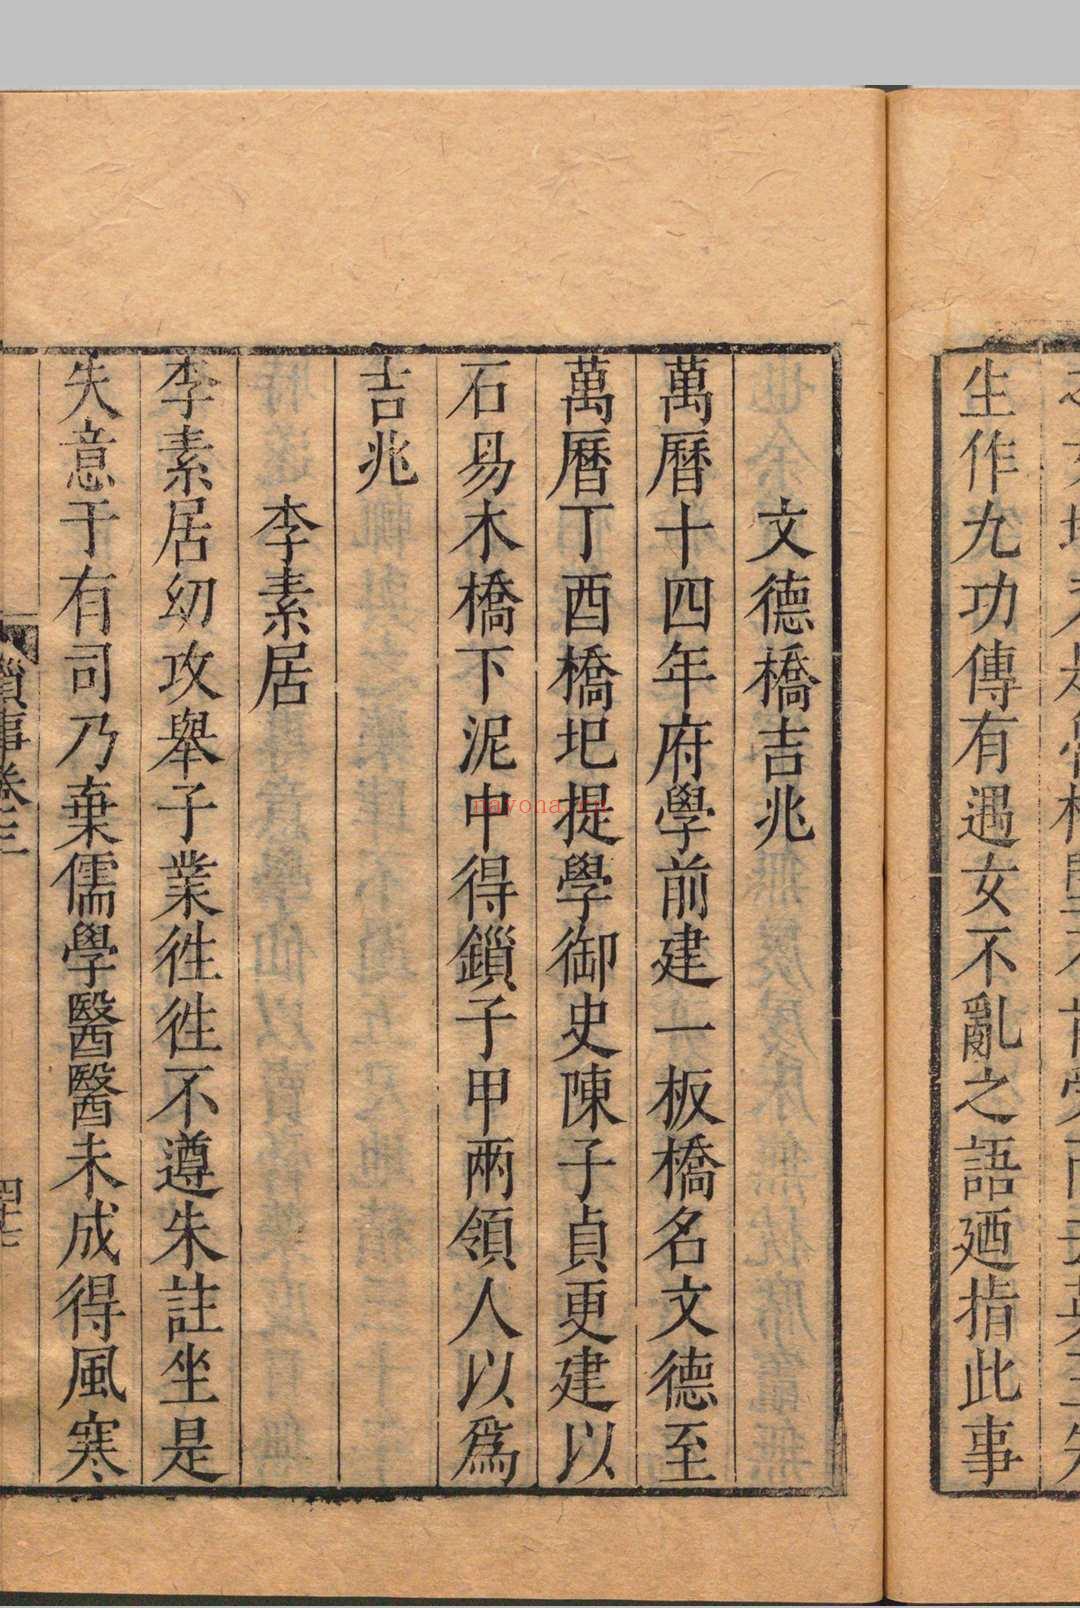 生作九功傳有遇女不亂之語廼指此事
文德橋吉兆
萬曆十四年府學前建一板橋名文德至
萬曆丁酉橋圯提學御史陳子貞更建以
石易木橋下泥中得鎻子甲兩領人以爲
吉兆
李素居
李素居幼攻舉子業徃徃不遵朱註坐是
失意于有司乃棄儒學醫醫未成得風寒
瑣事卷三